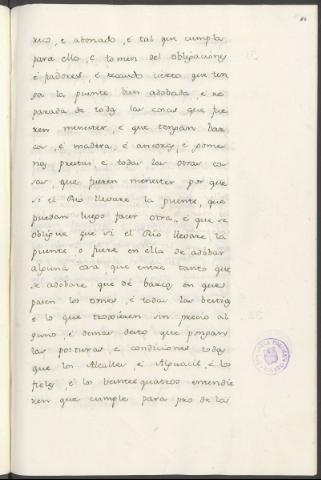 rico, e abonado, e tal que cumpla
para ello, e tomen del obligaciones
e fiadores, e recaudo cierto que ten
ga la puente bien adobada, e re
parada de todas las cosas que fue
ren menester, e que tengan bar
cos, e madera, e ancoras, e pome
nos prestas, e todas las otras co
sas, que fueren menester por que
si el Rio llevare la puente, que
puedan luego facer otra, e que se
obligue que si el Rio llevare la
puente o fuere en ella de adobar
alguna cosa que entre tanto que
se adobare que dé barco, en que
pasen los omes, e todas las bestias
e lo que troxieren sin precio al
guno, e demas desto que pongan
las posturas, e condiciones todas
que los Alcalles, e Alguacil, e los
fieles, e los veintequatros entendie
ren que cumple para pro de la